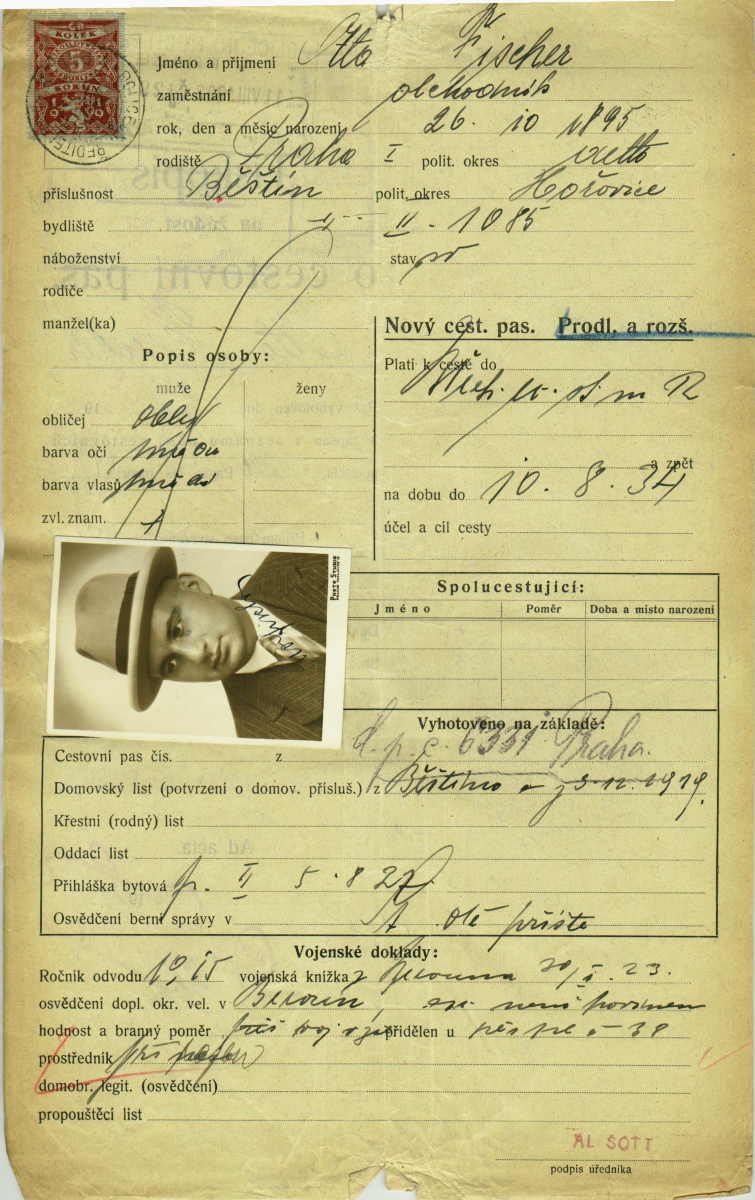 KOLEK
5
KORUN
1919
Jméno a přijmení Otto Fischer
zaměstnání obchodník
rok, den a měsíc narození 26. 10 1895
rodiště Praha I polit. okres
příslušnost Běštín polit. okres Hořovice
bydliště II - 1085
náboženství stav
rodiče
manžel(ka)
Nový cest. pas. Prodl. a rozš.
Popis osoby:
Platí k cestě do
muže ženy
obličej oblý
barva očí
barva vlasů
a zpět
na dobu do 10. 8. 34
zvl. znam.
účel a cíl cesty
Spolucestující:
Jméno Poměr Doba a místo narození
Vyhotoveno na základě:
Cestovní pas čís. z č.p.č. 6331 Praha.
Domovský list (potvrzení o domov. přísluš.) z 1919.
Křestní (rodný) list
Oddací list
Přihláška bytová II 5. 8 27
Osvědčení berní správy v
Vojenské doklady:
Ročník odvodu 1915 vojenská knížka z Berouna 23.
osvědčení dopl. okr. vel. v Beroun, není povinen
hodnost a branný poměr přidělen u 38
prostředník
domobr. legit. (osvědčení)
propouštěcí list
AL SOTT
podpis úředníka